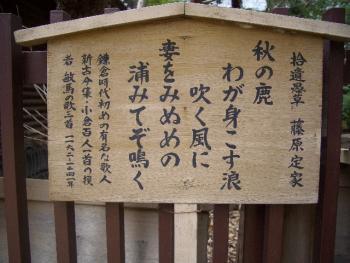 拾遺愚草 藤原定家
秋の鹿
わが身こす浪
吹く風に
妻をみぬめの
浦みてぞ鳴く
鎌倉時代初めの有名な歌人
新古今集・小倉百人一首の撰
者 敏馬の歌三首 一一六二－一二四一年